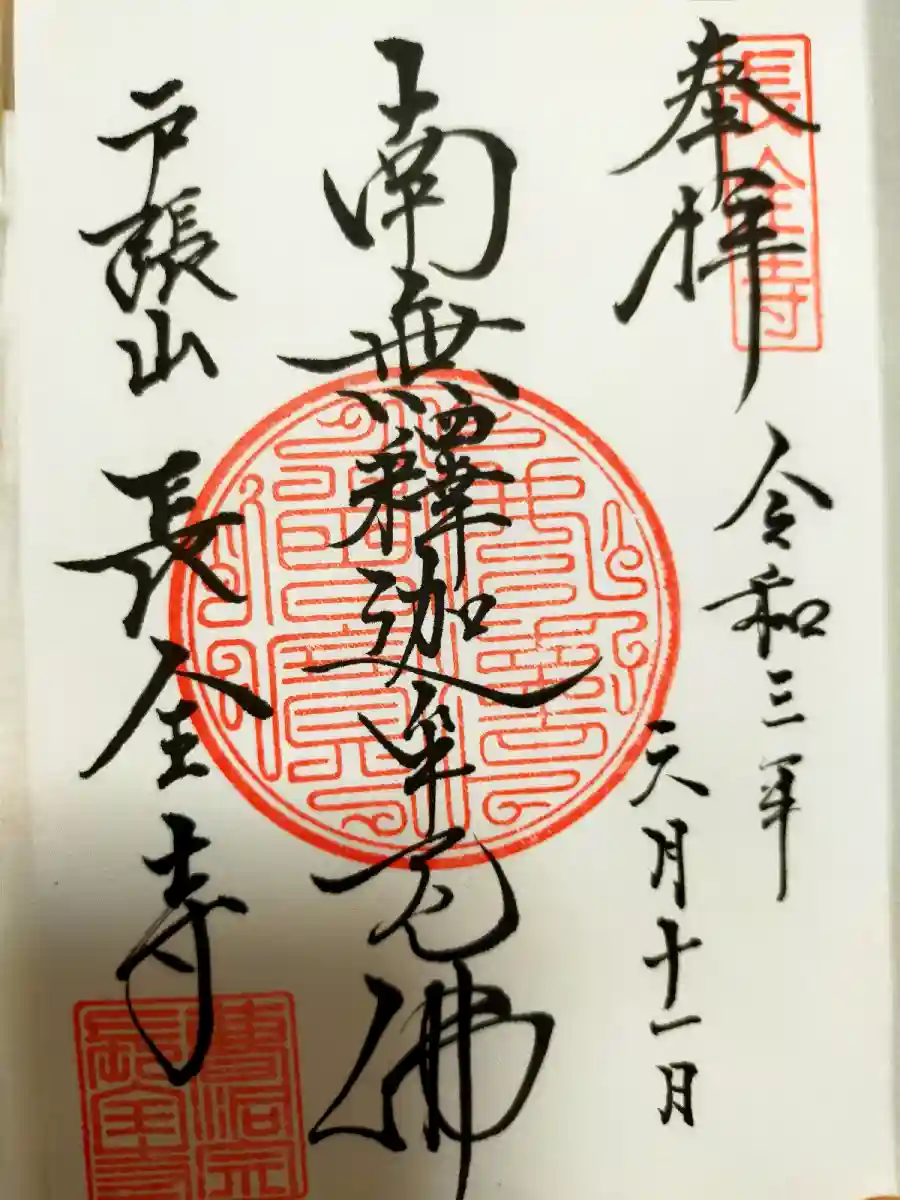 奉拝
長全寺
令和三年
六月十一日
南無釋迦牟尼佛
戸張山 長全寺
曹洞宗
長全寺